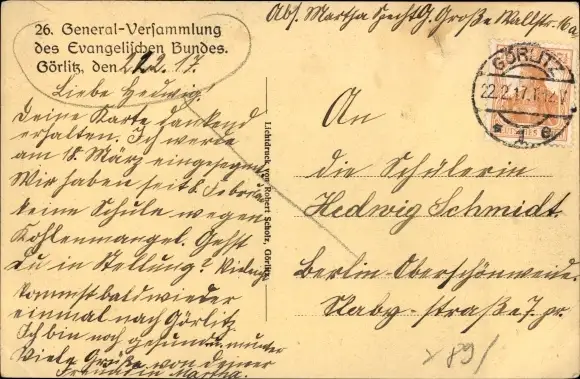 Abs. Martha Specht, G. Große Wallstr.
26. General-Versammlung
des Evangelischen Bundes.
Görlitz, den 22.2.17.
Liebe Hedwig!
Deine Karte dankend
erhalten. Ich werde
am 18. März eingesegnet
Wir haben seit 6. Februar
keine Schule wegen
Kohlenmangel. Gehst
Du in Stellung?
kommst bald wieder
einmal nach Görlitz.
Ich bin noch gesund u. munter
Viele Grüße von deiner
Freundin Martha.
Lichtdruck von Robert Scholz, Görlitz.
GÖRLITZ
22.2.17.
An
die Schülerin
Hedwig Schmidt.
Berlin-Oberschöneweide.
straße 7. pr.
89/